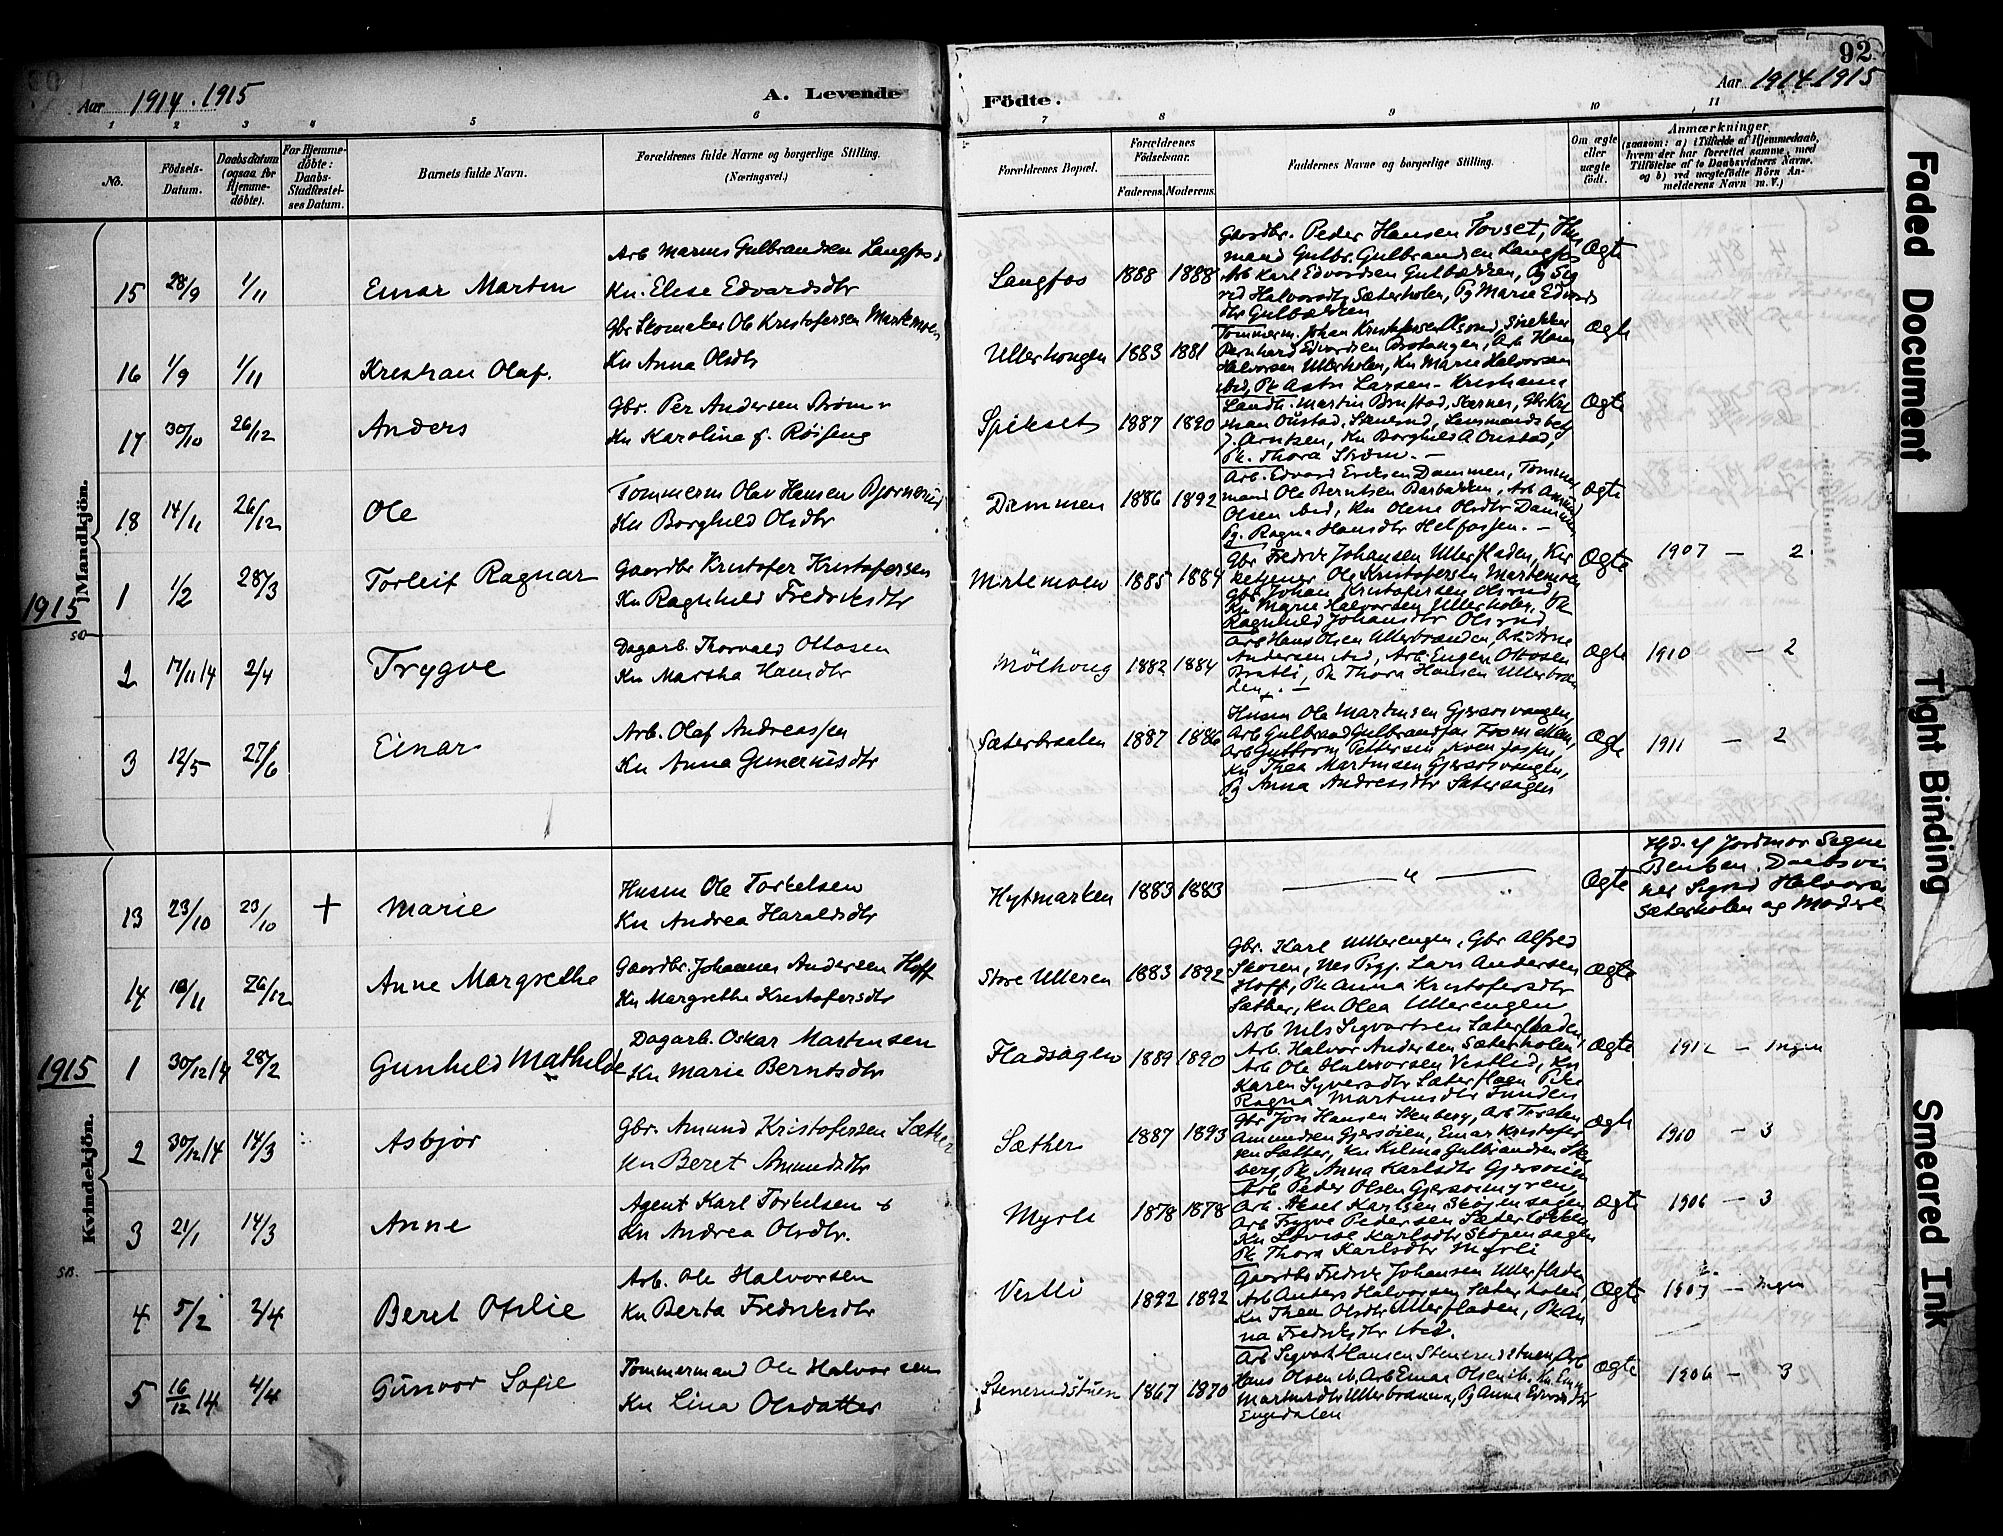 92
Aar 1914.1915
A. Levende
Födte.
Aar 1914.1915
1 2 3 4 5 6 7 8 9 10 11
No.
Födsels-
Datum.
Daabsdatum
(ogsaa for
Hjemme-
döbte).
For Hjemme-
döbte:
Daabs-
Stadfæstel-
ses Datum.
Barnets fulde Navn.
Forældrenes fulde Navne og borgerlige Stilling.
(Næringsvei.)
Forældrenes Bopæl.
Forældrenes
Födselsaar.
Faderens. Moderens.
Faddernes Navne og borgerlige Stilling.
Om ægte
eller
uægte
födt.
Anmærkninger
(saasom: a) i Tilfælde af Hjemmedaab,
hvem der har forrettet samme, med
Tilföielse af to Daabsvidners Navne.
og b) ved uægtefödte Börn An-
melderens Navn m. V.)
Mandkjön.
15 28/9 1/11 Einar Martin
Arb Marius Gulbrandsen Langfos
Kn. Elise Edvardsdtr
Langfos 1888 1888
Gaardbr. Peder Hansen Tovset,
mand Gulbr. Gulbrandsen Langfos
Arb Karl Edvardsen Gulbækken, Pg Sig
rid Halvorsdtr Sæterholen, Pg Marie Edvards
dtr Gulbækken
Ægte
16 1/9 1/11 Kristian Olaf.
Gbr Skomaker Ole Kristofersen Martemoen
Kn Anna Olsdtr
Ullerhougen 1883 1881
Tømmerm. Johan Kristofersen Olsrud, Snekker
Bernhard Edvardsen Brotangen, Arb Hans
Halvorsen Ullerholen, Kn Marie Halvorsen
ibid, Pk Astri Larsen - Kristiania
Ægte
17 30/10 26/12 Anders
Gbr. Per Andersen Strøm
Kn Karoline f. Røiseng
Spikset 1887 1890
Landh. Martin Brustad, Kr
stian Oustad, Stenerud, Lensmandsbetj
J. Arntsen, Kn Borghild A Oustad,
Pk. Thora Strøm. -
Ægte
18 14/11 26/12 Ole
Tømmerm Olav Hansen Bjørnerud
Kn Borghild Olsdtr
Dammen 1886 1892
Arb. Edvard Eriksen Dammen, Tømmer
mand Ole Berntsen Barbakken, Arb Amund
Olsen ibid, Kn Oline Olsdtr Dammen
Pg. Ragna Hansdtr Helfossen. -
Ægte
1915
1 1/2 28/3 Torleif Ragnar
Gaardbr Kristofer Kristofersen
Kn Ragnhild Fredriksdtr
Martemoen 1885 1884
Gbr Fredrik Johansen Ullerfladen, Kir
ketjener Ole Kristofersen Martemoen
Gbr. Johan Kristofersen Olsrud,
Kn Marie Halvorsen Ullerholen, Pk
Ragnhild Johansdtr Olsrud
Ægte 1907 - 2
2 17/11 14 2/4 Trygve
Dagarb. Thorvald Ottosen
Kn Martha Hansdtr
Mölhoug 1882 1884
Arb Hans Olsen Ullerbrænden, Arb Arne
Andersen ibid, Arb. Eugen Ottosen
Bratli, Pk Thora Hansen Ullerbræn
den. -
Ægte 1910 - 2
3 12/5 27/6 Einar
Arb. Olaf Andreassen
Kn Anna Gunerusdtr
Sæterbraaten 1887 1886
Husm Ole Martinsen Gjersøivangen,
Arb Gulbrand Gulbrandsen Fosmellem,
Arb Guttorm Pettersen Kvenfossen,
Kn Thea Martinsen Gjersøivangen,
Pg Anna Andreasdtr Sætersagen
Ægte 1911 - 2
Kvindekjön.
13 23/10 23/10 + Marie
Husm Ole Torkelsen
Kn Andrea Haraldsdtr
Hytmarken 1883 1883
— " —
Ægte
Hjd. af Jordmor Signe
Bentzen. Daabsvid
ner Sigrid Halvors
Sæterholen og Moderen
14 18/11 26/12 Anne Margrethe
Gaardbr. Johannes Andersen Hoff
Kn Margrethe Kristofersdtr
Store Ulleren 1883 1892
Gbr. Karl Ullerengen, Gbr Alfred
Skoren, Lars Andersen
Hoff, Pk Anna Kristofersdtr
Sæther, Kn Olea Ullerengen
Ægte
1915
1 30/12 14 28/2 Gunhild Mathilde
Dagarb. Oskar Martinsen
Kn Marie Berntsdtr
Fladsagen 1889 1890
Arb Nils Sigvartsen Sæterfladen,
Arb. Halvor Andersen Sæterholen,
Arb Ole Halvorsen Vestlid, Kn
Karen Syversdtr Sæterflaen Pike
Ragna Martinsdtr Lunden
Ægte 1912 - Ingen
2 30/12 14 14/3 Asbjør
Gbr. Amund Kristofersen Sæther
Kn Beret Amundsdtr
Sæther 1887 1893
Gbr Jon Hansen Stenberg, Arb Torsten
Amundsen Gjersøien, Einar Kristofer
sen Sæther, Kn Kilma Gulbrandsen Sten
berg, Pk Anna Karlsdtr Gjersøien
Ægte 1910 - 3
3 21/1 14/3 Anne
Agent Karl Torkelsen &
Kn Andrea Olsdtr.
Myrli 1878 1878
Arb Peder Olsen Gjersøimyren,
Arb. Aksel Karlsen Skøiensagen
Arb Trygve Pedersen Sæterløkken
Kn Lovise Karlsdtr Skøiensagen
Pk Thora Karlsdtr Myrli
Ægte 1906 - 3
4 5/2 2/4 Beret Otilie
Arb. Ole Halvorsen
Kn Berta Fredriksdtr
Vestli 1892 1892
Gaardbr Fredrik Johansen Ullerfladen
Arb Anders Halvorsen Sæterholen
Kn Thea Olsdtr Ullerfladen, Pk An
na Fredriksdtr ibid.
Ægte 1907 - Ingen
5 16/12 14 4/4 Günvor Sofie
Tømmermand Ole Halvorsen
Kn Lina Olsdatter
Stenerudstuen 1867 1870
Arb Sigvart Hansen Stenerudstuen, Arb
Hans Olsen ib. Arb Einar Olsen ib.
Martinsdtr Ullerbrænna, Pg Anne
Engedalen
Ægte 1906 - 3
Faded Document
Tight Binding
Smeared Ink